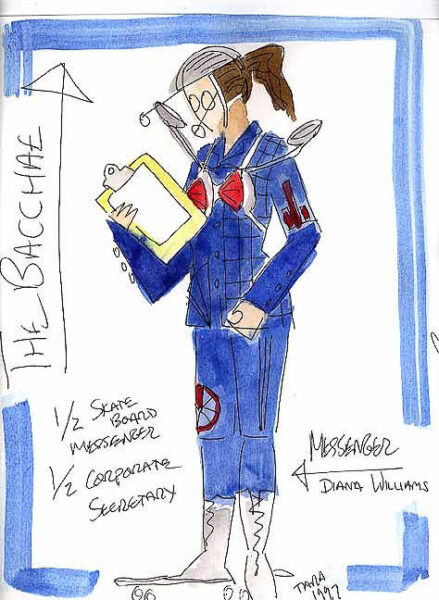 THE BACCHAE
1/2 SKATE
BOARD
MESSENGER
1/2 CORPORATE
SECRETARY
MESSENGER
DIANA WILLIAMS
TARA
1997